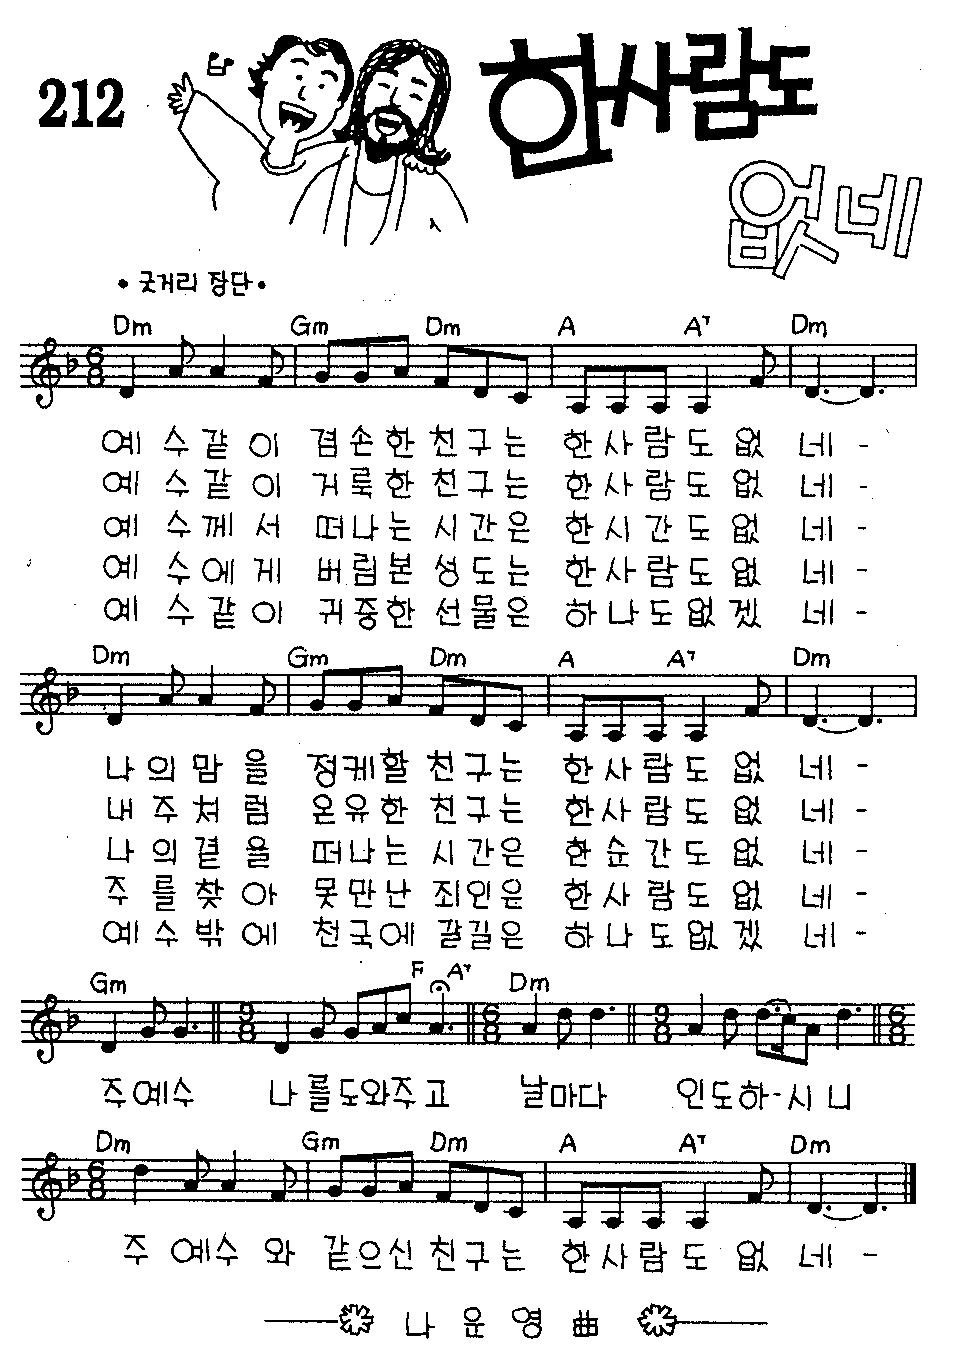 212
한사람도
없네
• 굿거리 장단 •
Dm Gm Dm A A7 Dm
예 수 같 이 겸 손 한 친 구 는 한 사 람 도 없 네 -
예 수 같 이 거 룩 한 친 구 는 한 사 람 도 없 네 -
예 수 께 서 떠 나 는 시 간 은 한 시 간 도 없 네 -
예 수 에 게 버 림 본 성 도 는 한 사 람 도 없 네 -
예 수 같 이 귀 중 한 선 물 은 하 나 도 없 겠 네 -
Dm Gm Dm A A7 Dm
나 의 맘 을 정 케 할 친 구 는 한 사 람 도 없 네 -
내 주 처 럼 온 유 한 친 구 는 한 사 람 도 없 네 -
나 의 곁 을 떠 나 는 시 간 은 한 순 간 도 없 네 -
주 를 찾 아 못 만 난 죄 인 은 한 사 람 도 없 네 -
예 수 밖 에 천 국 에 갈 길 은 하 나 도 없 겠 네 -
Gm F A7 Dm
주 예 수 나 를 도 와 주 고 날 마 다 인 도 하 - 시 니
Dm Gm Dm A A7 Dm
주 예 수 와 같 으 신 친 구 는 한 사 람 도 없 네 -
나 운 영 曲